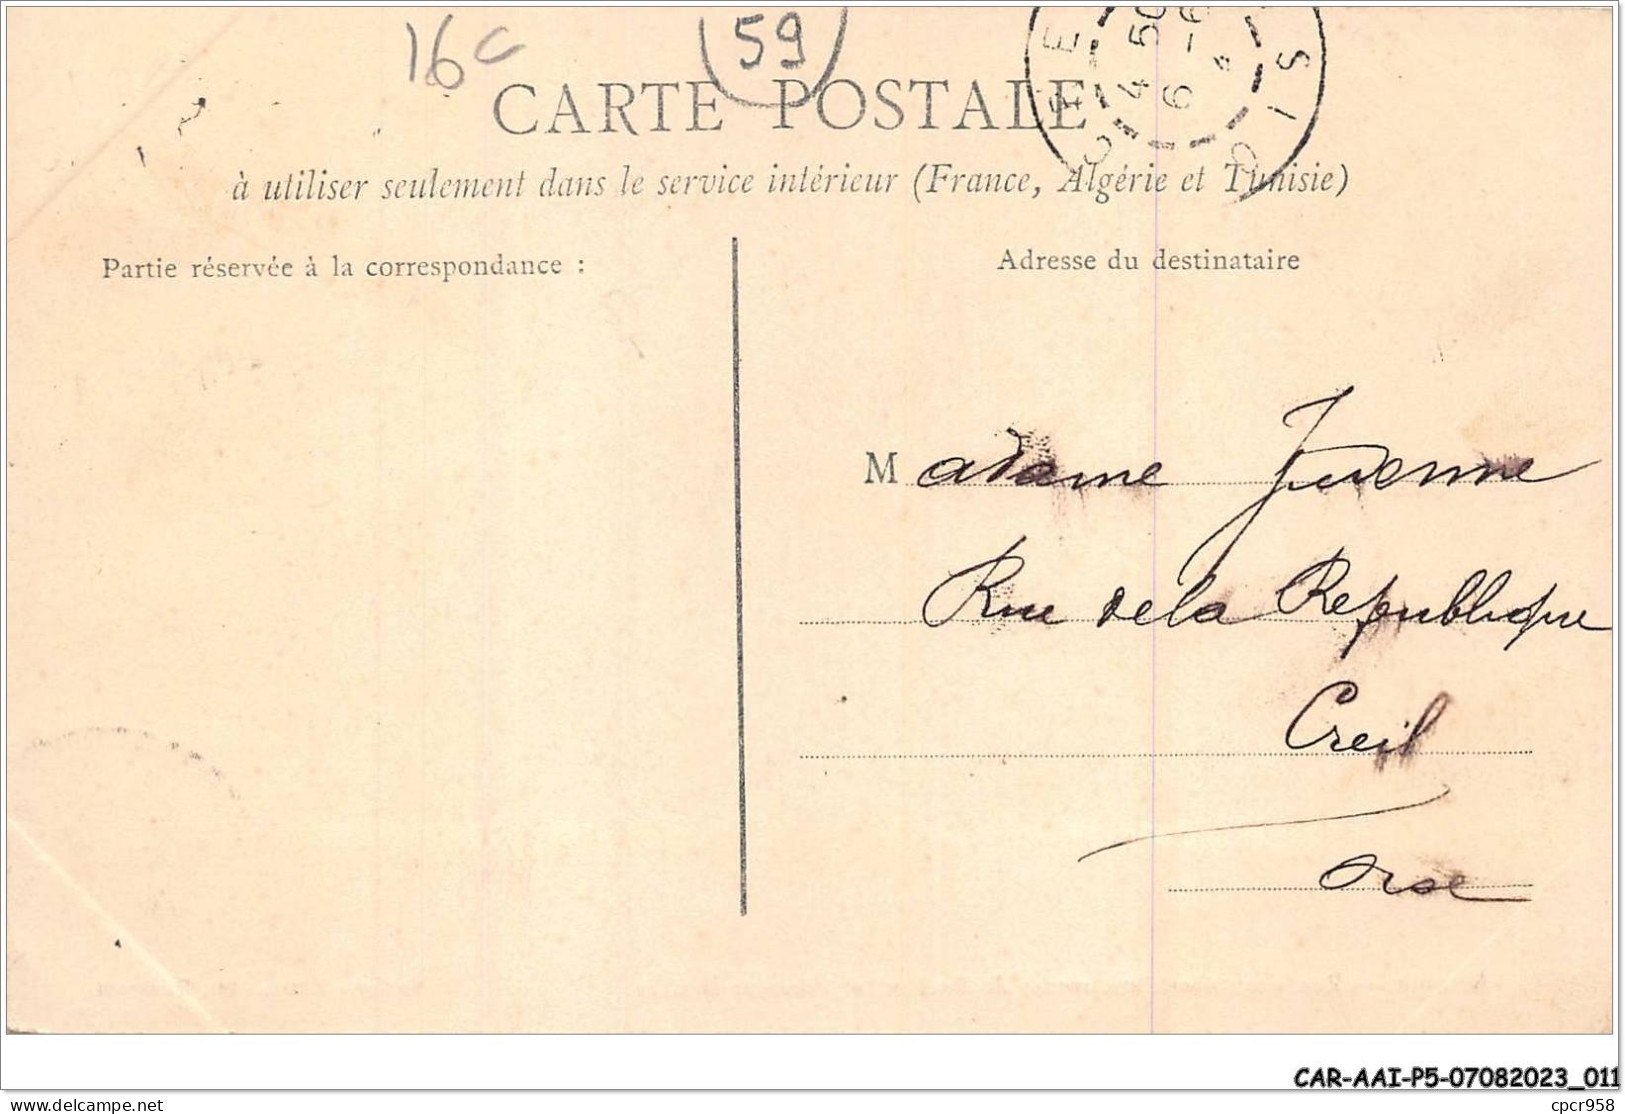 16c
59
CARTE POSTALE
à utiliser seulement dans le service intérieur (France, Algérie et Tunisie)
CREIL
4 50
6 - 6
OISE
Partie réservée à la correspondance :
Adresse du destinataire
Madame
Rue de la Republique
Creil
Oise
CAR-AAI-P5-07082023_011
delcampe.net
cpcr958